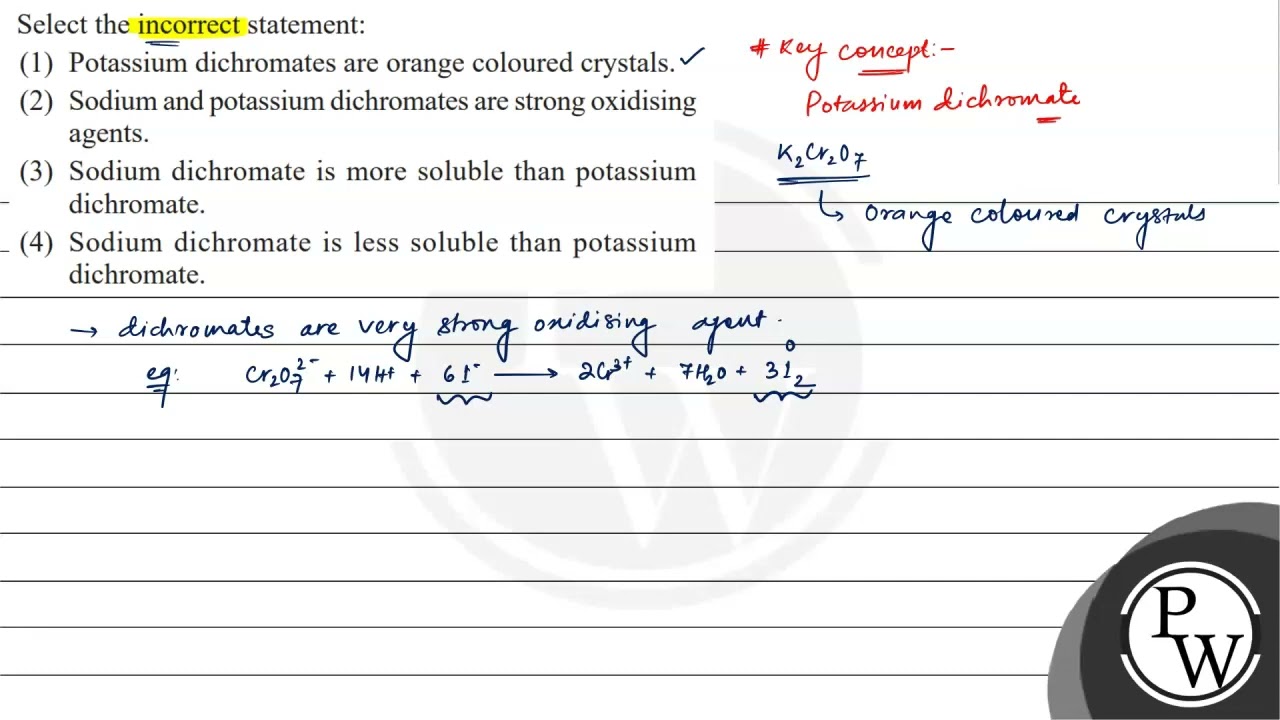 Select the incorrect statement:
(1) Potassium dichromates are orange coloured crystals. ✓
(2) Sodium and potassium dichromates are strong oxidising
agents.
(3) Sodium dichromate is more soluble than potassium
dichromate.
(4) Sodium dichromate is less soluble than potassium
dichromate.
# Key concept:-
Potassium dichromate
K₂Cr₂O₇
↳ Orange coloured crystals
→ dichromates are very strong oxidising agent.
eg: Cr₂O₇²⁻ + 14H⁺ + 6I⁻ ⟶ 2Cr³⁺ + 7H₂O + 3I₂⁰
PW